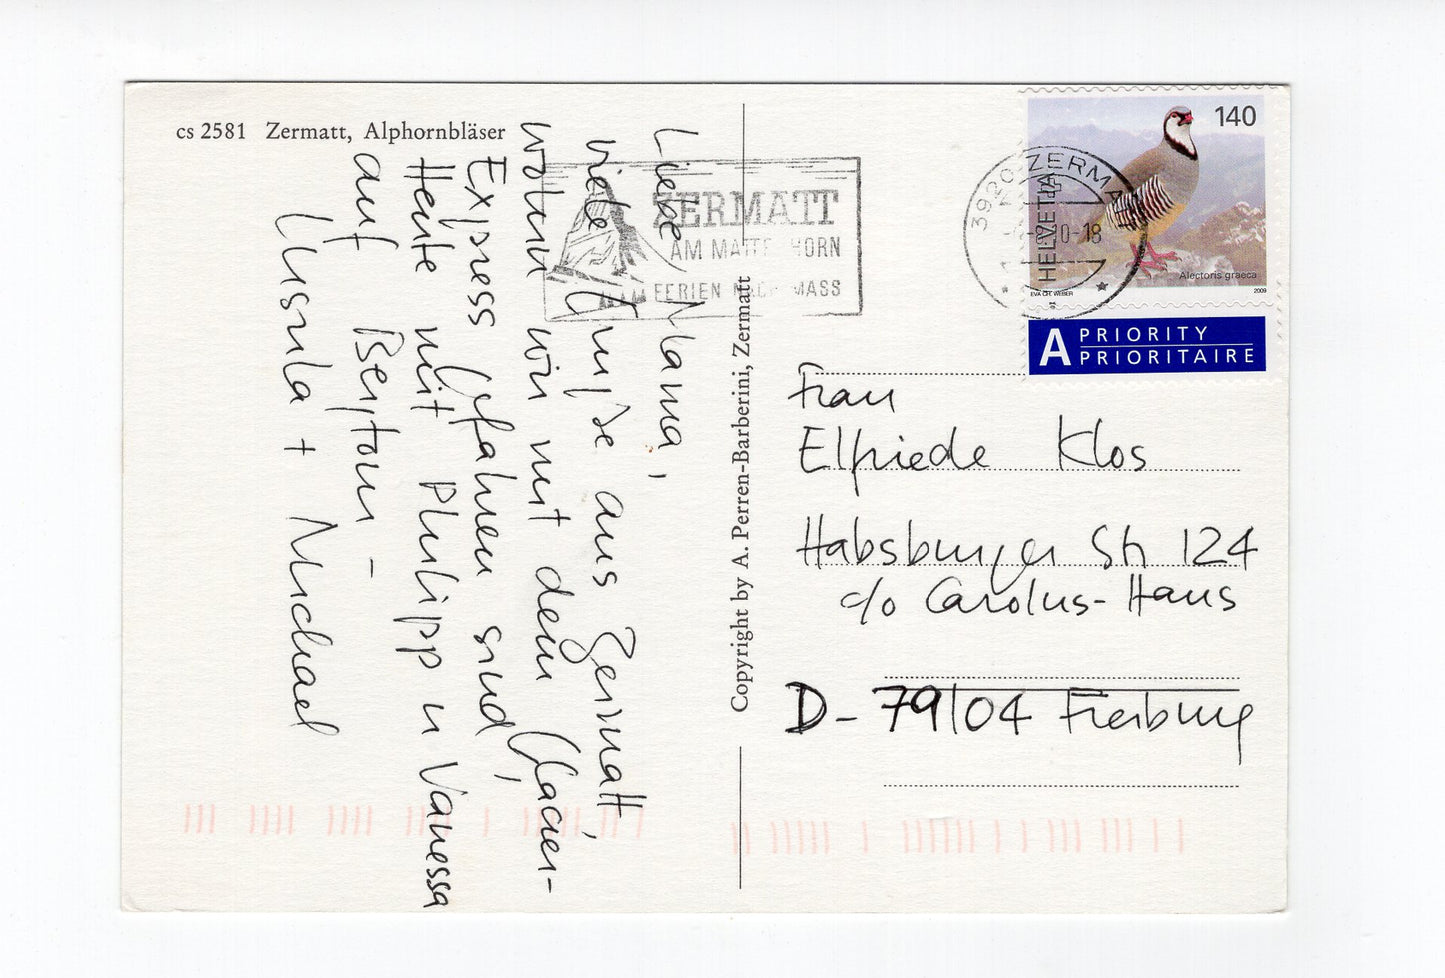 cs 2581 Zermatt, Alphornbläser
Liebe Mama,
viele Grüße aus Zermatt,
wohin wir mit dem Glacier-
Express gefahren sind,
Heute mit Philipp u Vanessa
auf Bergtour –
Ursula + Michael
ZERMATT
AM MATTERHORN
FERIEN NACH MASS
Copyright by A. Perren-Barberini, Zermatt
3920 ZERMA
-18
140
HELVETIA
Alectoris graeca
EVA CH. WEBER
2009
A PRIORITY
PRIORITAIRE
Frau
Elfriede Klos
Habsburger Str 124
c/o Carolus-Haus
D- 79104 Freiburg